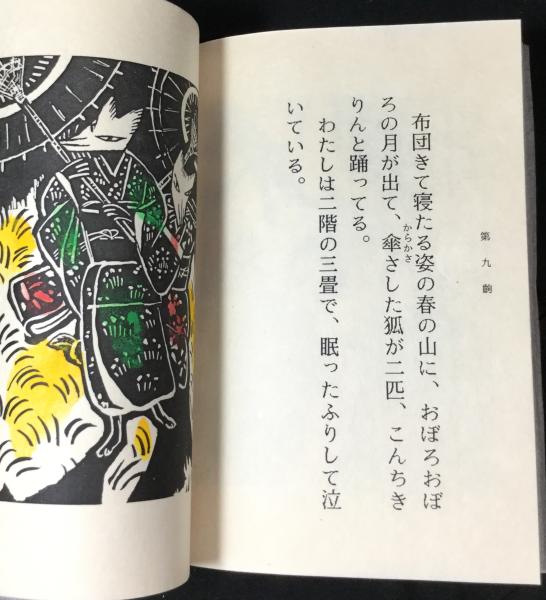 第九齣
布団きて寝たる姿の春の山に、おぼろおぼ
ろの月が出て、傘さした狐が二匹、こんちき
からかさ
りんと踊ってる。
わたしは二階の三畳で、眠ったふりして泣
いている。